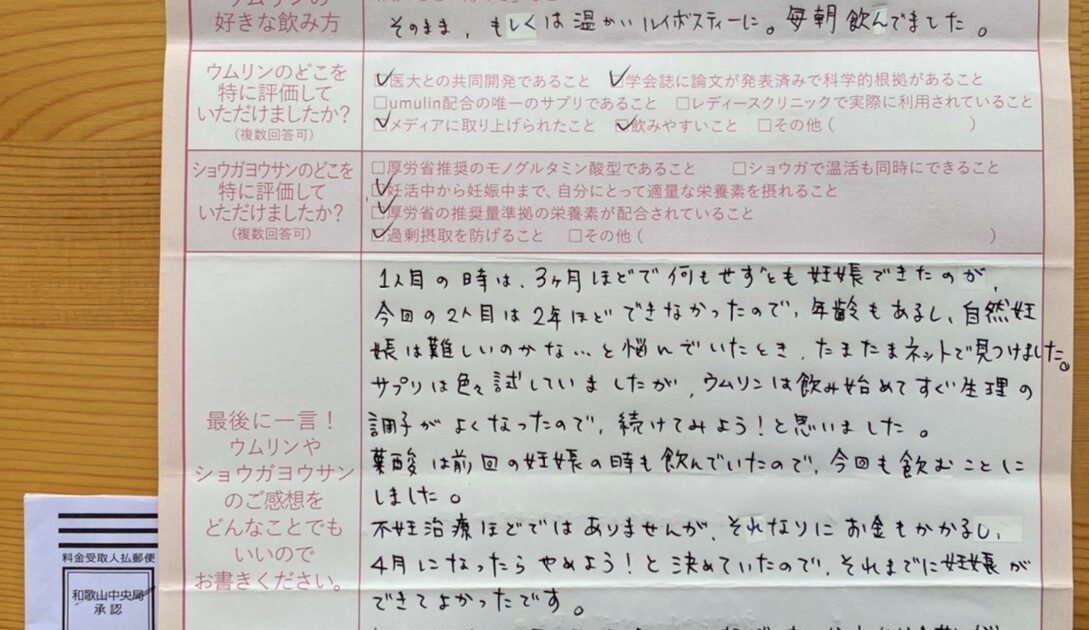 ウムリンの
好きな飲み方
そのまま、もしくは温かいルイボスティーに。毎朝飲んでました。
ウムリンのどこを
特に評価して
いただけましたか?
(複数回答可)
□医大との共同開発であること □学会誌に論文が発表済みで科学的根拠があること
□umulin配合の唯一のサプリであること □レディースクリニックで実際に利用されていること
□メディアに取り上げられたこと □飲みやすいこと □その他( )
ショウガヨウサンのどこを
特に評価して
いただけましたか?
(複数回答可)
□厚労省推奨のモノグルタミン酸型であること □ショウガで温活も同時にできること
□妊活中から妊娠中まで、自分にとって適量な栄養素を摂れること
□厚労省の推奨量準拠の栄養素が配合されていること
□過剰摂取を防げること □その他( )
最後に一言!
ウムリンや
ショウガヨウサン
のご感想を
どんなことでも
いいので
お書きください。
1人目の時は、3ヶ月ほどで何もせずとも妊娠できたのが、
今回の2人目は2年ほどできなかったので、年齢もあるし、自然妊
娠は難しいのかな…と悩んでいたとき、たまたまネットで見つけました。
サプリは色々試していましたが、ウムリンは飲み始めてすぐ生理の
調子がよくなったので、続けてみよう!と思いました。
葉酸は前回の妊娠の時も飲んでいたので、今回も飲むことに
しました。
不妊治療ほどではありませんが、それなりにお金もかかるし、
4月になったらやめよう!と決めていたので、それまでに妊娠が
できてよかったです。
料金受取人払郵便
和歌山中央局
承認